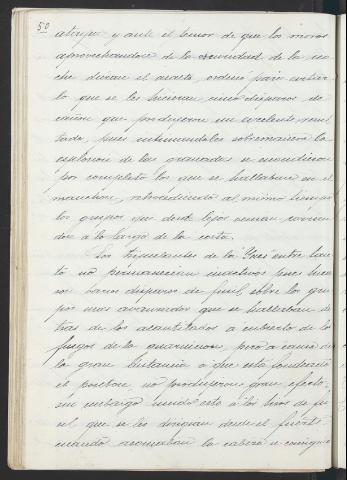 50
atropa y ante el temor de que los moros
aprovechandose de la oscuridad de la no-
che dieran el asalto, ordenó para evitar-
lo que se les hicieran cinco disparos de
cañon que produjeron un excelente resul-
tado, pues intimidados sobremanera la
explosion de las granadas se escondieron
por completo los que se hallaban en el
manchon, retrocediendo al mismo tiempo
los grupos que desde lejos venian corrien-
dose a lo largo de la costa.
Los tripulantes de la "Ynés" entre tan-
to no permanecian inactivos pues hicie-
ron varios disparos de fusil sobre los gru-
pos mas avanzados que se hallaban de-
tras de los acantilados a cubierto de los
fuegos de la guarnicion, pero a causa de
la gran distancia a que está fondeado
el ponton, no produjeron gran efecto,
sin embargo unido esto a los tiros de fu-
sil que se les dirigian desde el fuerte
cuando asomaban la cabeza se consiguió